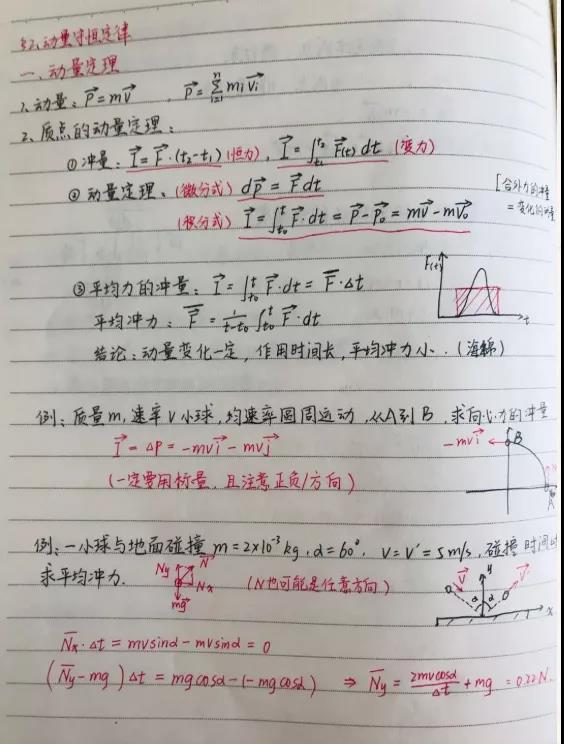 §2、动量守恒定律
一、动量定理
1、动量：P⃗=mv⃗ , P⃗=∑ᵢ₌₁ⁿ mᵢv⃗ᵢ
2、质点的动量定理：
①冲量：I⃗=F⃗·(t₂-t₁)(恒力), I⃗=∫ₜ₁ᵗ² F⃗(t) dt (变力)
②动量定理、(微分式) dp⃗=F⃗dt [合外力的冲量
(积分式) I⃗=∫ₜ₀ᵗ F⃗·dt=P⃗-P⃗₀=mv⃗-mv⃗₀ =变化的动量
③平均力的冲量：I⃗=∫ₜ₀ᵗ F⃗·dt=F̄·Δt F(t) t
平均冲力：F̄=1/(t-t₀) ∫ₜ₀ᵗ F⃗·dt
结论：动量变化一定，作用时间长，平均冲力小.(海绵)
例：质量m,速率v小球,匀速率圆周运动,从A到B,求向心力的冲量
I⃗=ΔP=-mvi⃗-mvj⃗ -mvi⃗ B
(一定要用标量，且注意正负/方向) A
例：一小球与地面碰撞 m=2×10⁻³kg,α=60°, v=v'=5m/s,碰撞时间
求平均冲力. Ny N⃗ Nx mg⃗ (N也可能是任意方向) v⃗ y v⃗ α α x
N̄x·Δt=mvsinα-mvsinα=0
(N̄y-mg)Δt=mgcosα-(-mgcosα) ⇒ N̄y=2mvcosα/Δt+mg=0.22N.